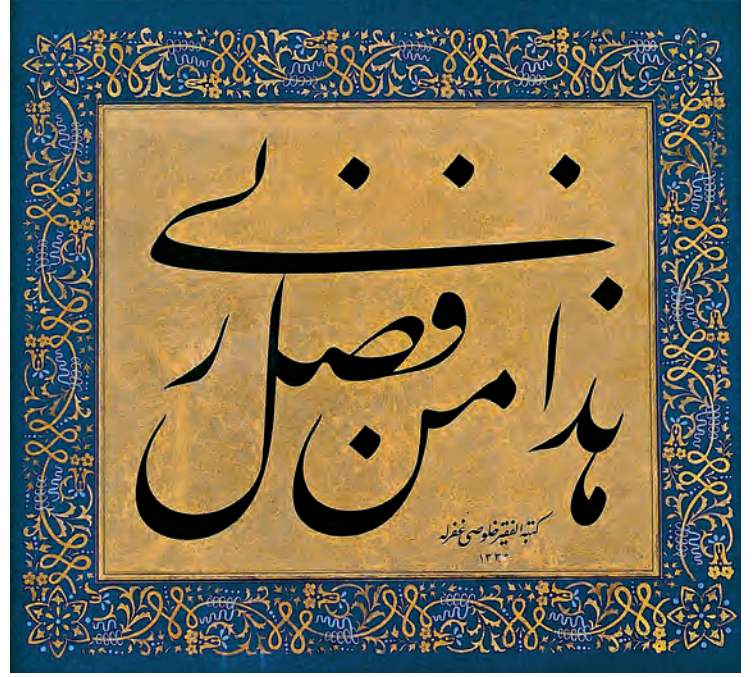 هذا من فضل ربي
كتبه الفقير خلوصی غفرله